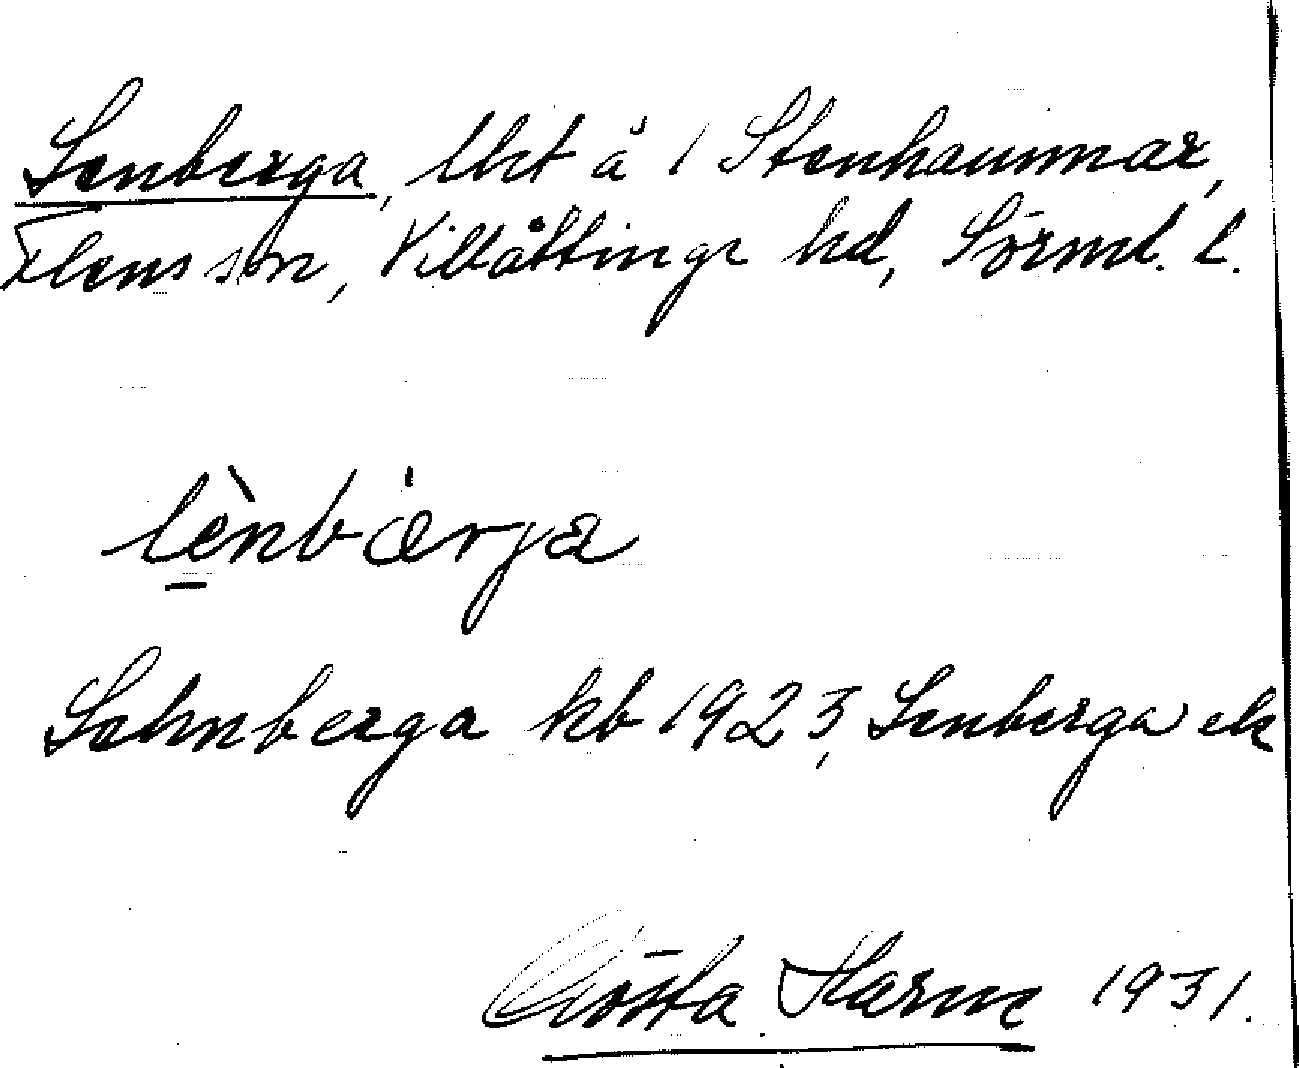 Lenberga, lht å 1 Stenhammar,
Flens sn, Villåttinge hd, Sörml. l.
lènbærja
Lehnberga kb 1923, Lenberga ek
Gösta Harne 1931.